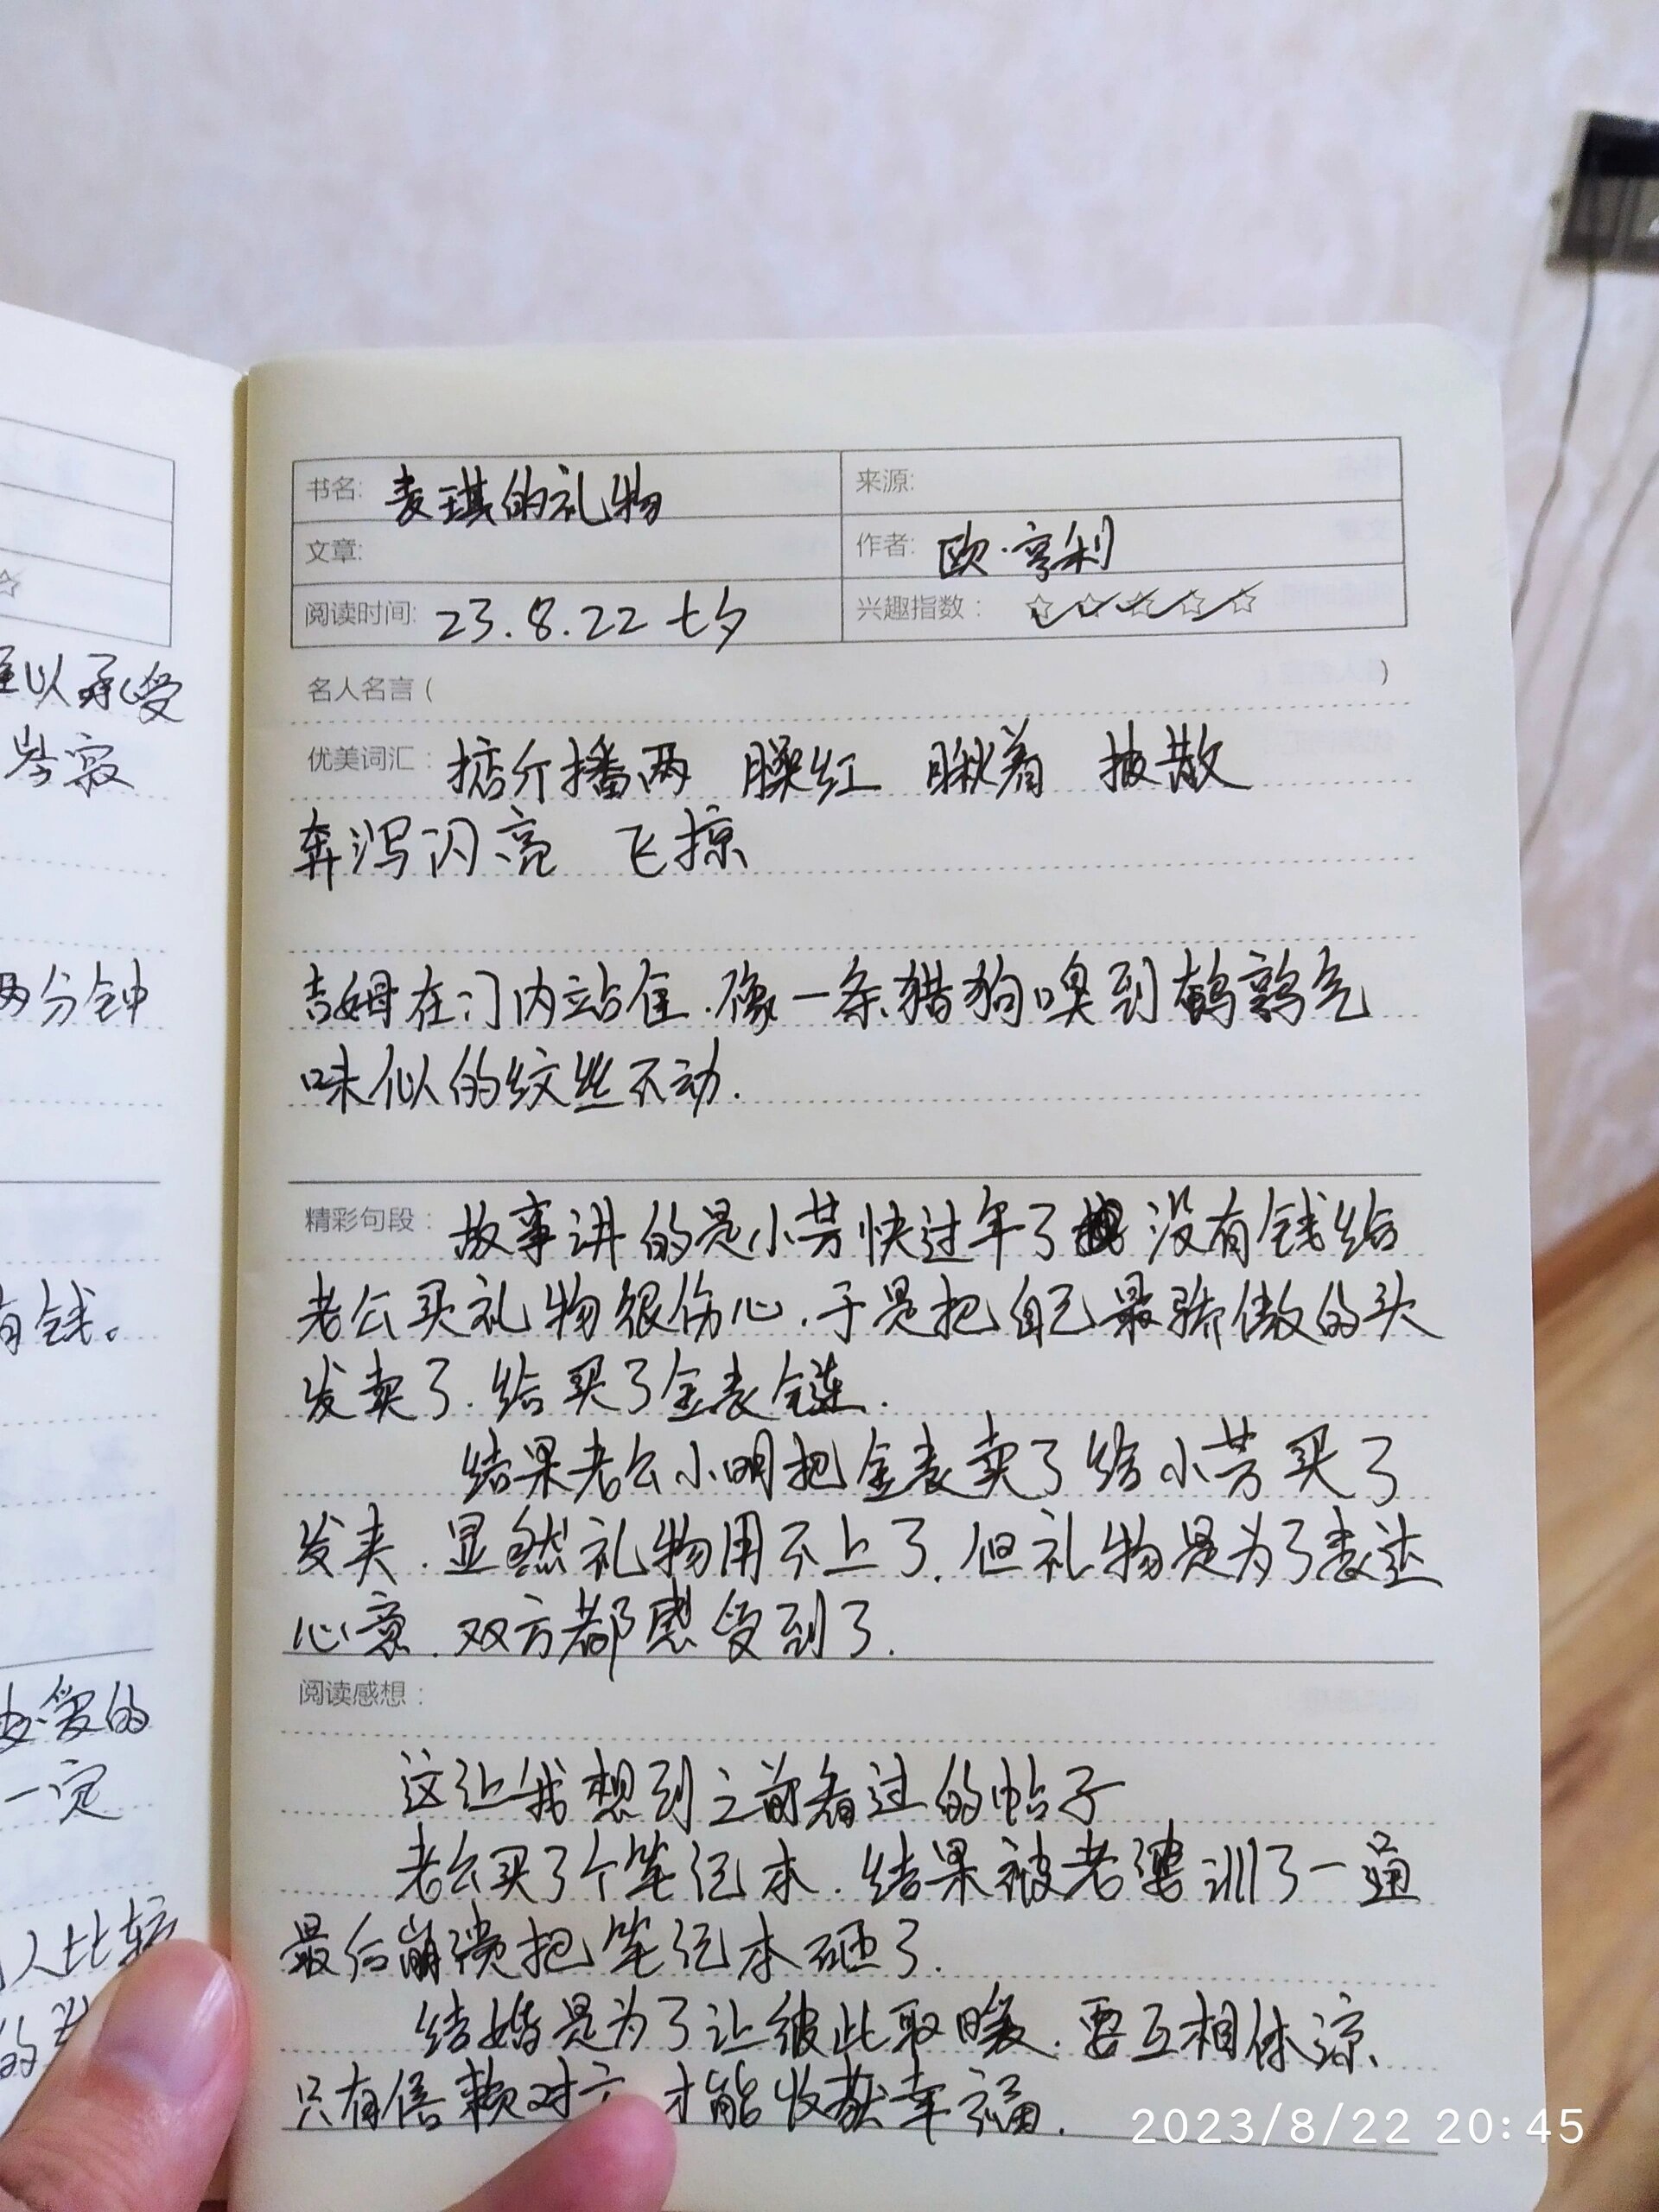 书名: 麦琪的礼物
来源:
文章:
作者: 欧·亨利
阅读时间: 23.8.22 七夕
兴趣指数: ☆☆☆☆☆
名人名言 ( )
优美词汇: 掂斤播两 臊红 瞅着 披散
奔泻闪亮 飞掠
吉姆在门内站住.像一条猎狗嗅到鹌鹑气
味似的纹丝不动.
精彩句段: 故事讲的是小芳快过年了 没有钱给
老公买礼物很伤心.于是把自己最骄傲的头
发卖了.给买了金表链.
结果老公小明把金表卖了给小芳买了
发夹.显然礼物用不上了.但礼物是为了表达
心意.双方都感受到了.
阅读感想:
这让我想到之前看过的帖子
老公买了个笔记本.结果被老婆训了一通
最后崩溃把笔记本砸了.
结婚是为了让彼此取暖.要互相体谅、
只有信赖对方 才能收获幸福.
难以承受
岑寂
两分钟
有钱。
爱的
一定
人比较
的
2023/8/22 20:45